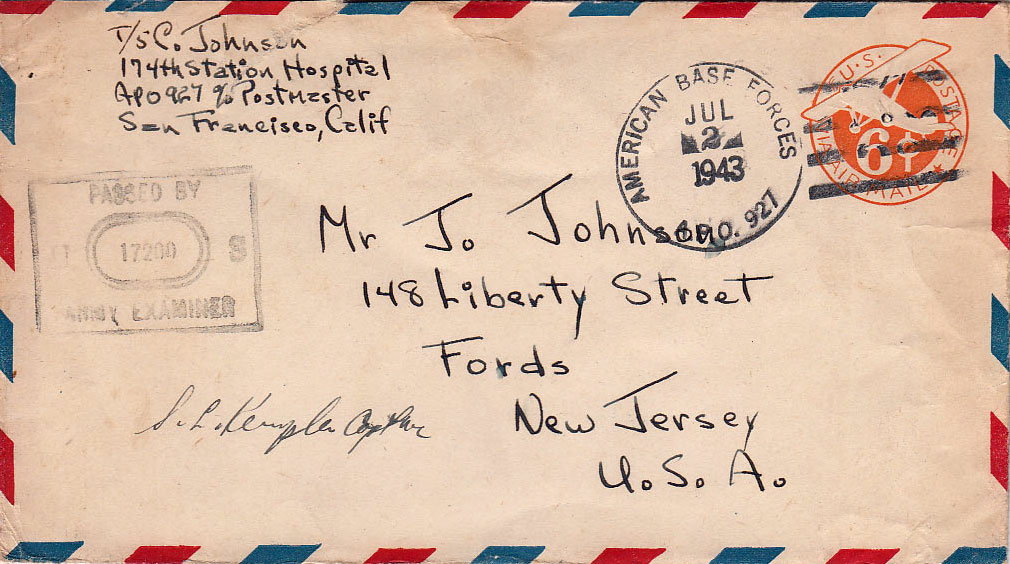 T/5 C. Johnson
174th Station Hospital
APO 927 % Postmaster
San Francisco, Calif
AMERICAN BASE FORCES
JUL
2
1943
A.P.O. 927
U.S. POSTAGE
6¢
VIA AIR MAIL
PASSED BY
17200 S
ARMY EXAMINER
Mr Jo Johnson
148 Liberty Street
Fords
New Jersey
U.S.A.
S. L.